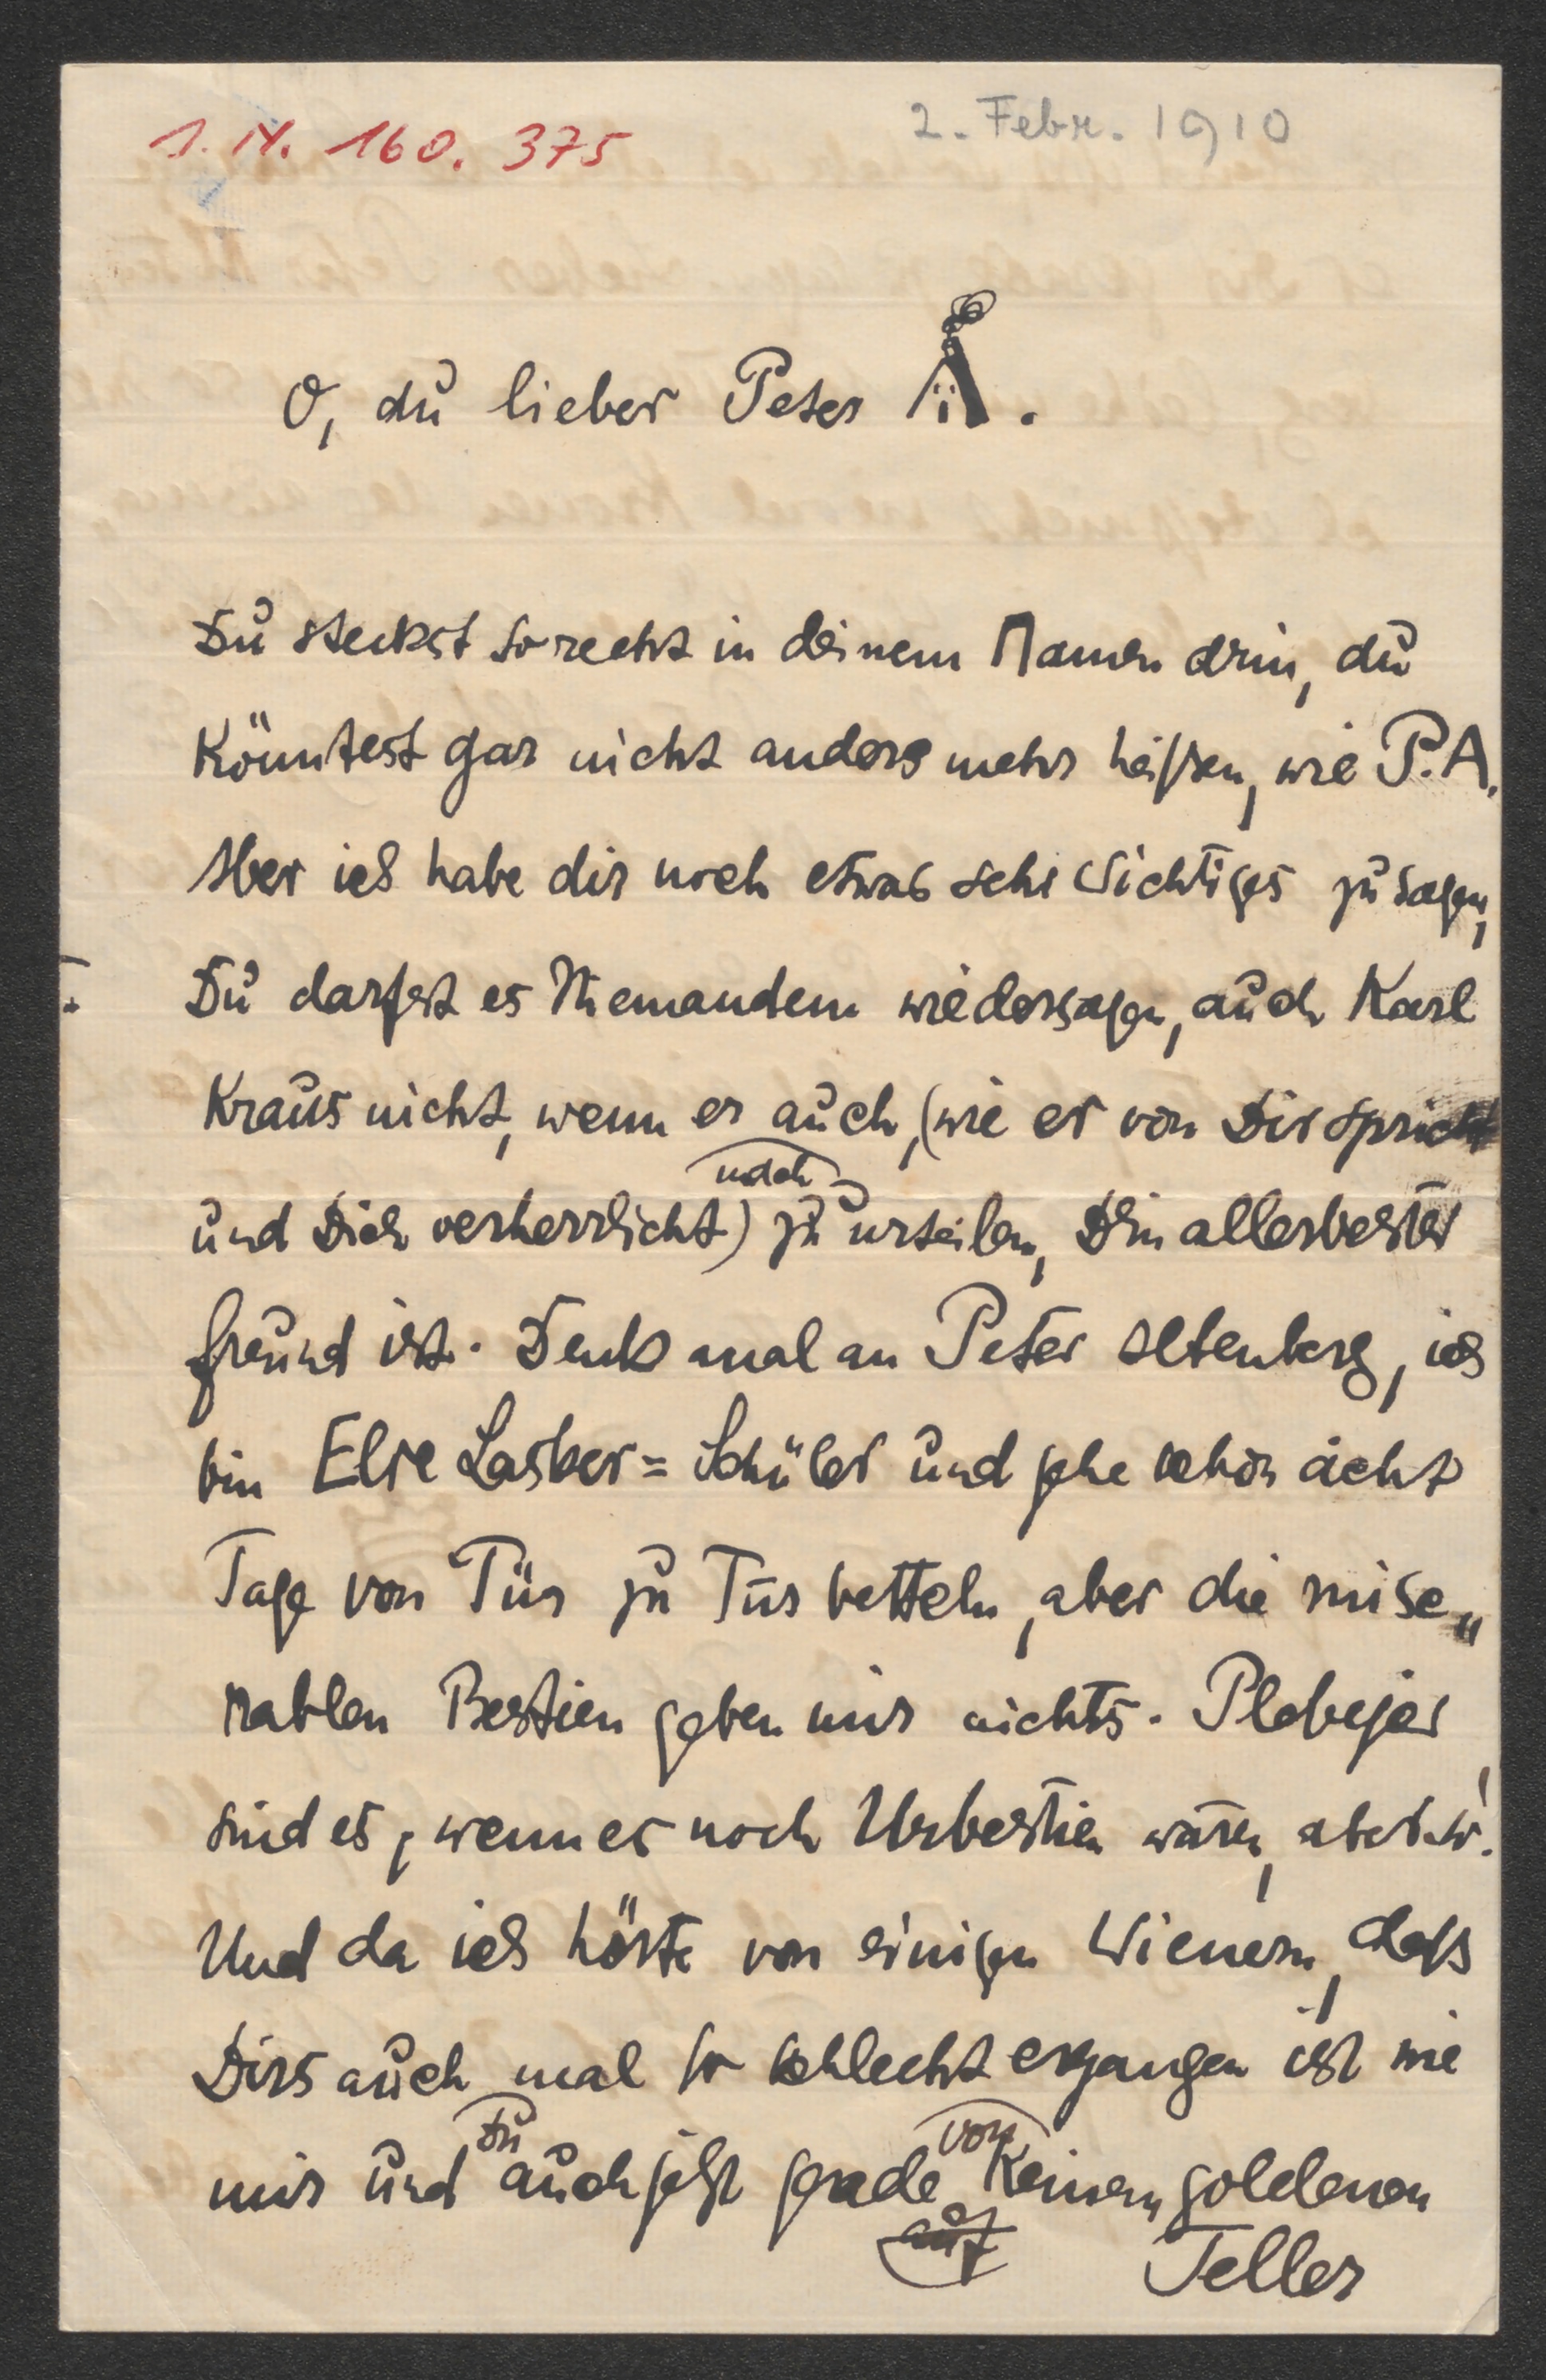 1. N. 160. 375
2. Febr. 1910
O, du lieber Peter A.
Du steckst so recht in deinem Namen drin, du
könntest gar nicht anders mehr heißen, wie P.A.
Aber ich habe dir noch etwas sehr Wichtiges zu sagen,
Du darfst es Niemandem wiedersagen, auch Karl
Kraus nicht, wenn er auch, (wie er von Dir spricht
und Dich verherrlicht) nach zu urteilen, Dein allerbester
Freund ist. Denk mal an Peter Altenberg, ich
bin Else Lasker=Schüler und gehe schon acht
Tage von Tür zu Tür betteln, aber die mise„
rablen Bestien geben mir nichts. Plebejer
sind es, wenn es noch Urbestien wären, aber so!
Und da ich hörte von einigen Wienern, daß
Dirs auch mal so schlecht ergangen ist wie
mir und du auch jetzt gerade von keinem goldenen
auf Teller